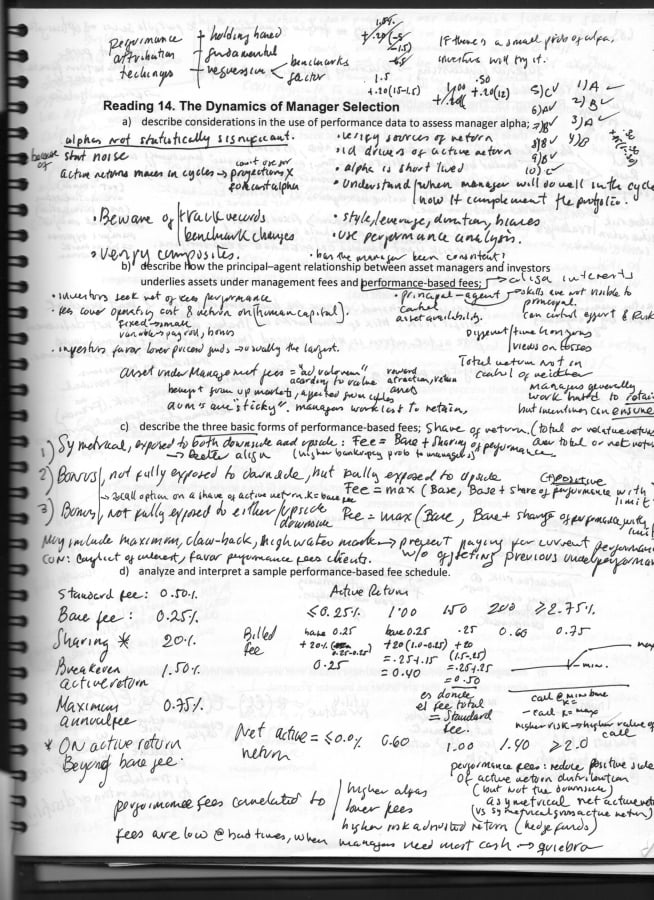 performance attribution techniques
holding based
fundamental
regression
benchmarks
factor
1.5
+.20(15-1.5)
.50
+.20(12)
If there's a small prob of alpha,
investors will try it.
5) C ✓
6) A ✓
7) B ✓
8) B ✓
9) B ✓
10) C ✓
1) A ✓
2) B ✓
3) A ✓
4) B
Reading 14. The Dynamics of Manager Selection
a) describe considerations in the use of performance data to assess manager alpha;
alphas not statistically significant.
because of
short noise
active returns moves in cycles → projections X
can't use for
forecast alpha
• Beware of
track records
benchmark changes
• verify composites.
• verify sources of return
• id drivers of active return
• alpha is short lived
• understand
when manager will do well in the cycle
how it complement the portfolio.
• style, leverage, duration, biases
• use performance analysis.
• has the manager been consistent?
b) describe how the principal–agent relationship between asset managers and investors
underlies assets under management fees and performance-based fees;
→ align interests
• investors seek net of fees performance
• fees cover operating cost & return on [human capital].
fixed - small
variable payroll, bonus
• investors favor lower priced funds → usually the largest.
• principal-agent
→ skills are not visible to
principal.
can control effort & Risk
asset availability.
Different
time horizons
views on losses
Total return not in
control of neither
asset under Management fees = "ad valorem"
according to value
reward
attraction, return
assets
benefit from up markets, affected from cycles
AUM's are "sticky". managers work less to retain.
managers generally
work hard to retain
but incentives can ensure
c) describe the three basic forms of performance-based fees;
Share of return. (total or relative return
over total or net return
1) Symetrical, exposed to both downside and upside: Fee = Base + sharing of performance.
→ better align
(higher bankruptcy prob to managers)
2) Bonus
not fully exposed to downside, but fully exposed to upside
→ ≥ call option on a share of active return. K = base fee
Fee = max (Base, Base + share of performance
(positive
3) Bonus
not fully exposed to either
upside
downside
Fee = max (Base, Base + sharing of performance, with
limit
May include maximum, claw-back, high water mark → prevent paying for current performance
w/o offseting previous underperformance
CON: Conflict of interest, favor performance fees clients.
d) analyze and interpret a sample performance-based fee schedule.
Standard fee: 0.50%
Base fee: 0.25%
Sharing * 20%
Breakeven active return 1.50%
Maximum annual fee 0.75%
* ON active return
Beyond base fee:
Active Return
≤0.25% 1.00 150 200 ≥2.75%
Billed fee
base 0.25
0.25
base 0.25
+20(1.0-0.25)
= .25+.15
= 0.40
.25
+20
(1.5-.25)
= .25+.25
= 0.50
0.60
0.75
es donde
el fee total
= Standard
fee.
max
min.
call @ min base
- call K = max
higher risk → higher value of
call
Net active return = ≤0.0% 0.60 1.00 1.40 ≥2.0
performance fees correlated to
higher alpas
lower fees
higher risk adjusted return (hedge funds)
performance fees: reduce positive side
of active return distribution
(but not the downside)
asymetrical net active return
(vs symetrical gross active return)
fees are low @ bad times, when managers need most cash → quiebra